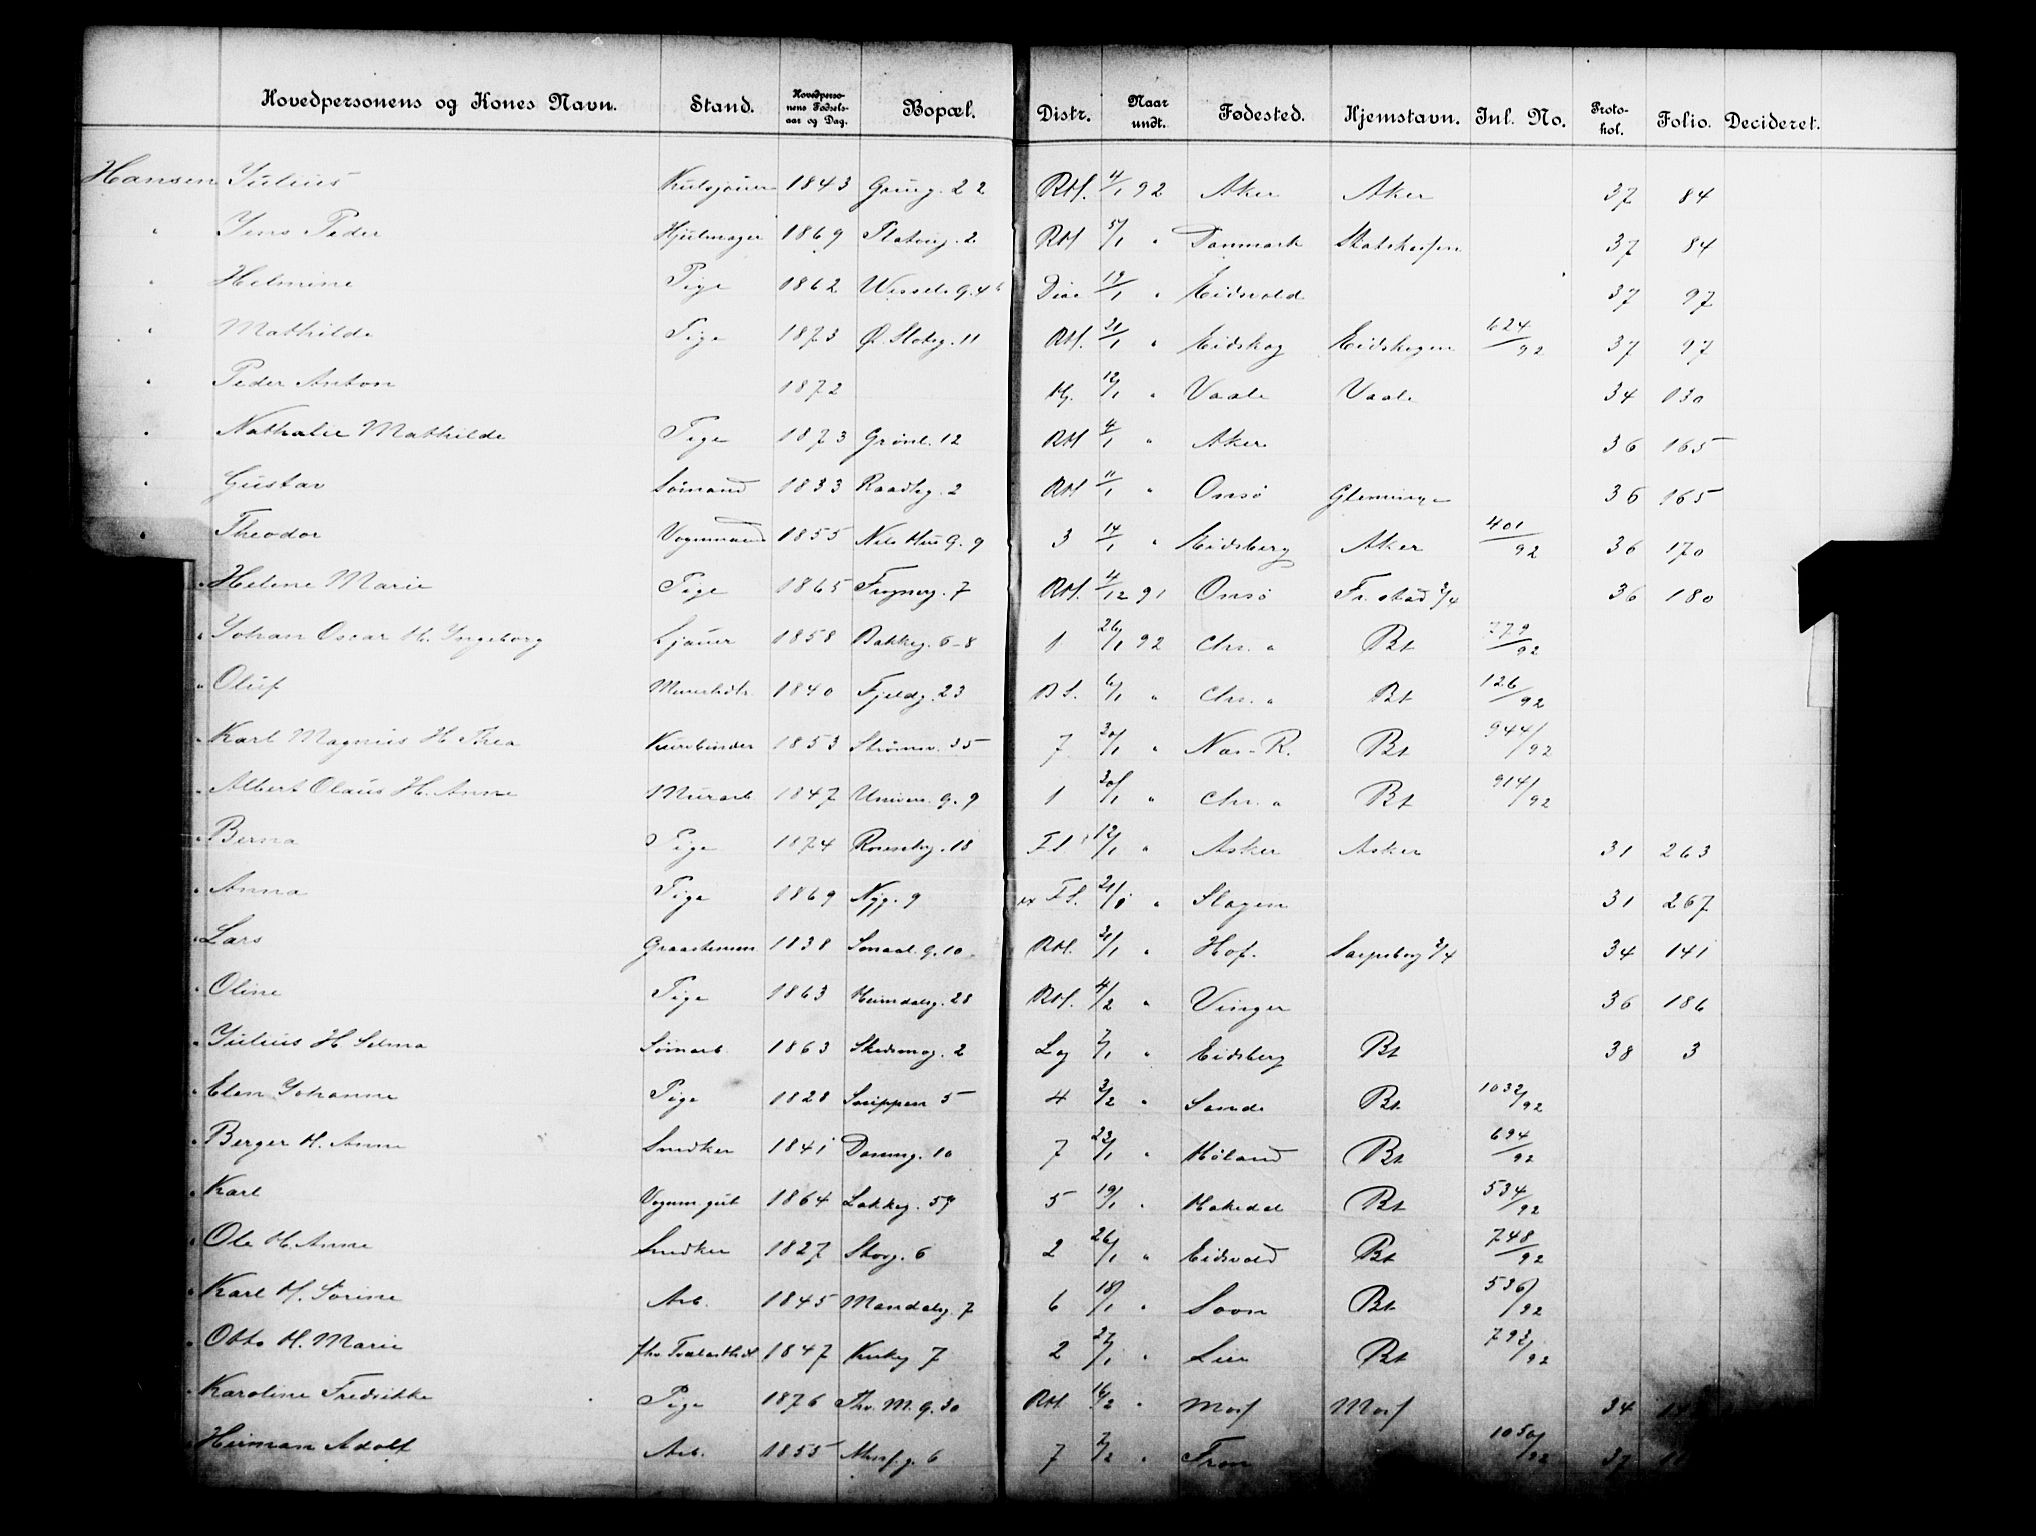 Hovedpersonens og Kones Navn. Stand. Hovedperso-nens Fødsels-aar og Dag. Bopæl. Distr. Naar undt. Fødested. Hjemstavn. Inl. No. Proto-kol. Folio. Decideret.
Hansen Julius 1843 Grüng. 22 RM. 4/1 92 Aker Aker 37 84
" Jens Peder Hjulmager 1869 Platoug. 2 RM 5/1 " Danmark 37 84
" Helmine Pige 1862 Wessels g. 4 12/1 " Eidsvold 37 97
" Mathilde Pige 1873 Ø. Slotsg. 11 RM. 21/1 " Eidskog Eidskogen 624/92 37 97
" Peder Anton 1872 12/1 " Vaale Vaale 34 130
" Nathalie Mathilde Pige 1873 Grønl. 12 RM 4/1 " Aker 36 165
" Gustav Sømand 1833 Raadhg. 2 RM 11/1 " Onsø Glemminge 36 165
" Theodor Vognmand 1855 Nils Hus g. 9 3 14/1 " Eidsberg Aker 401/92 36 170
" Helene Marie Pige 1865 Frognerg. 7 RM. 4/12 91 Onsø Fr.stad 3/4 36 180
" Johan Oscar H. Ingeborg Sjauer 1858 Bakkeg. 6-8 1 26/1 92 Chr. a Bt 779/92
" Oluf 1840 Fjeldg. 23 6/1 " Chr. a Bt 126/92
" Karl Magnus H. Thea Kurvbinder 1853 Strømsv. 35 7 30/1 " Nas-R. Bt 944/92
" Albert Olaus H. Anne Murarb. 1847 Univers. g. 9 1 30/1 " Chr. a Bt 914/92
" Berna Pige 1874 Rosenbg. 18 12/1 " Asker Asker 31 263
" Anna Pige 1869 Nyg. 9 21/1 " Slagen 31 267
" Lars 1838 Smaal. g. 10 RM. 21/1 " Hof. Sarpsborg 3/4 34 141
" Oline Pige 1863 Heimdalsg. 28 RM. 4/2 " Vinger 36 186
" Julius H Selma Sømarb. 1863 Skedsmog. 2 7/1 " Eidsberg Bt 38 3
" Elen Johanne Pige 1828 5 4 3/2 " Sande Bt 1032/92
" Berger H. Anne Snedker 1841 Dronng. 10 7 23/1 " Høland Bt 694/92
" Karl Vognm gut 1864 Lakkeg. 59 5 19/1 " Hakedal Bt 534/92
" Ole H. Anne Snedker 1827 Storg. 6 2 26/1 " Eidsvold Bt 748/92
" Karl H. Sorine Arb. 1845 Mandalsg. 7 6 18/1 " Bt 536/92
" Otto H. Marie 1847 Kirkeg 7 2 27/1 " Lier Bt 793/92
" Karoline Fredrikke Pige 1876 Thv. M. g. 30 RM 16/2 " Moss Moss 34
" Herman Adolf Arb. 1855 6 7 2/2 " Fron 1050/92 37